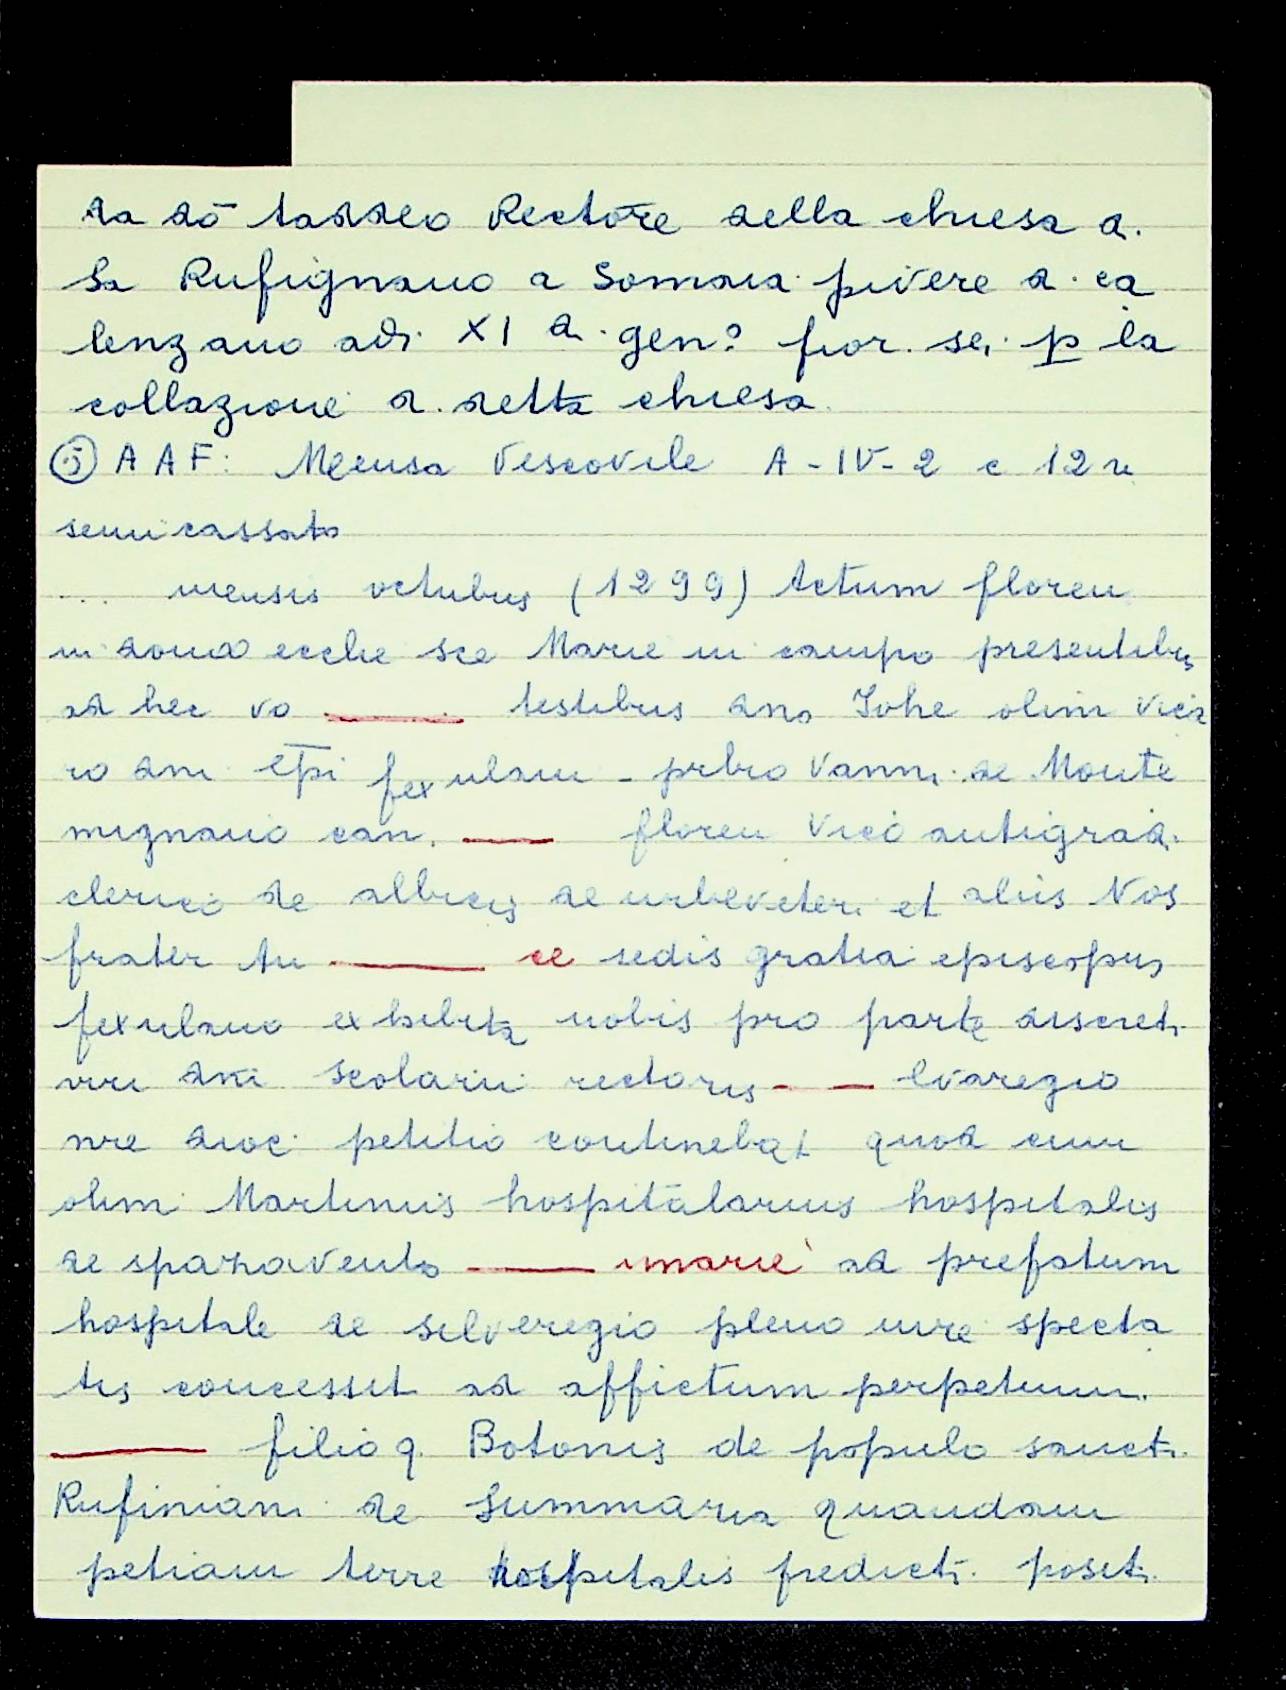 da dō taddeo Rectore della chiesa d.
Sa Rufignano a Somaia pivere d. ca
lenzano adi XI d. gen° fior. sei p la
collazione d. detta chiesa
⑤ AAF: Mensa Vescovile A-IV-2 c 12 r
semicassato
... mensis octubris (1299) Actum floren
in domo ecclie sce Marie in campo presentibus
ad hec vo ____ testibus dno Iohe olim vica
rio dni epi fexulani - prbro Vanni de Monte
mignano can. ____ floren Vico antigrad.
clerico de albicis de urbeveteri et aliis Nos
frater An ____ ce sedis gratia episcopus
fexulano exhibita nobis pro parte discreti
viri dni scolarii rectoris - — lvaregio
nre dioc. petitio continebat quod cum
olim Martinus hospitalarius hospitalis
de sparavento ____ marie ad prefatum
hospitale de silveregio pleno iure specta
tis concessit ad affictum perpetuum.
____ filio q. Botonis de populo sancti
Rufiniani de Summaria quandam
petiam terre hospitalis predicti posit.